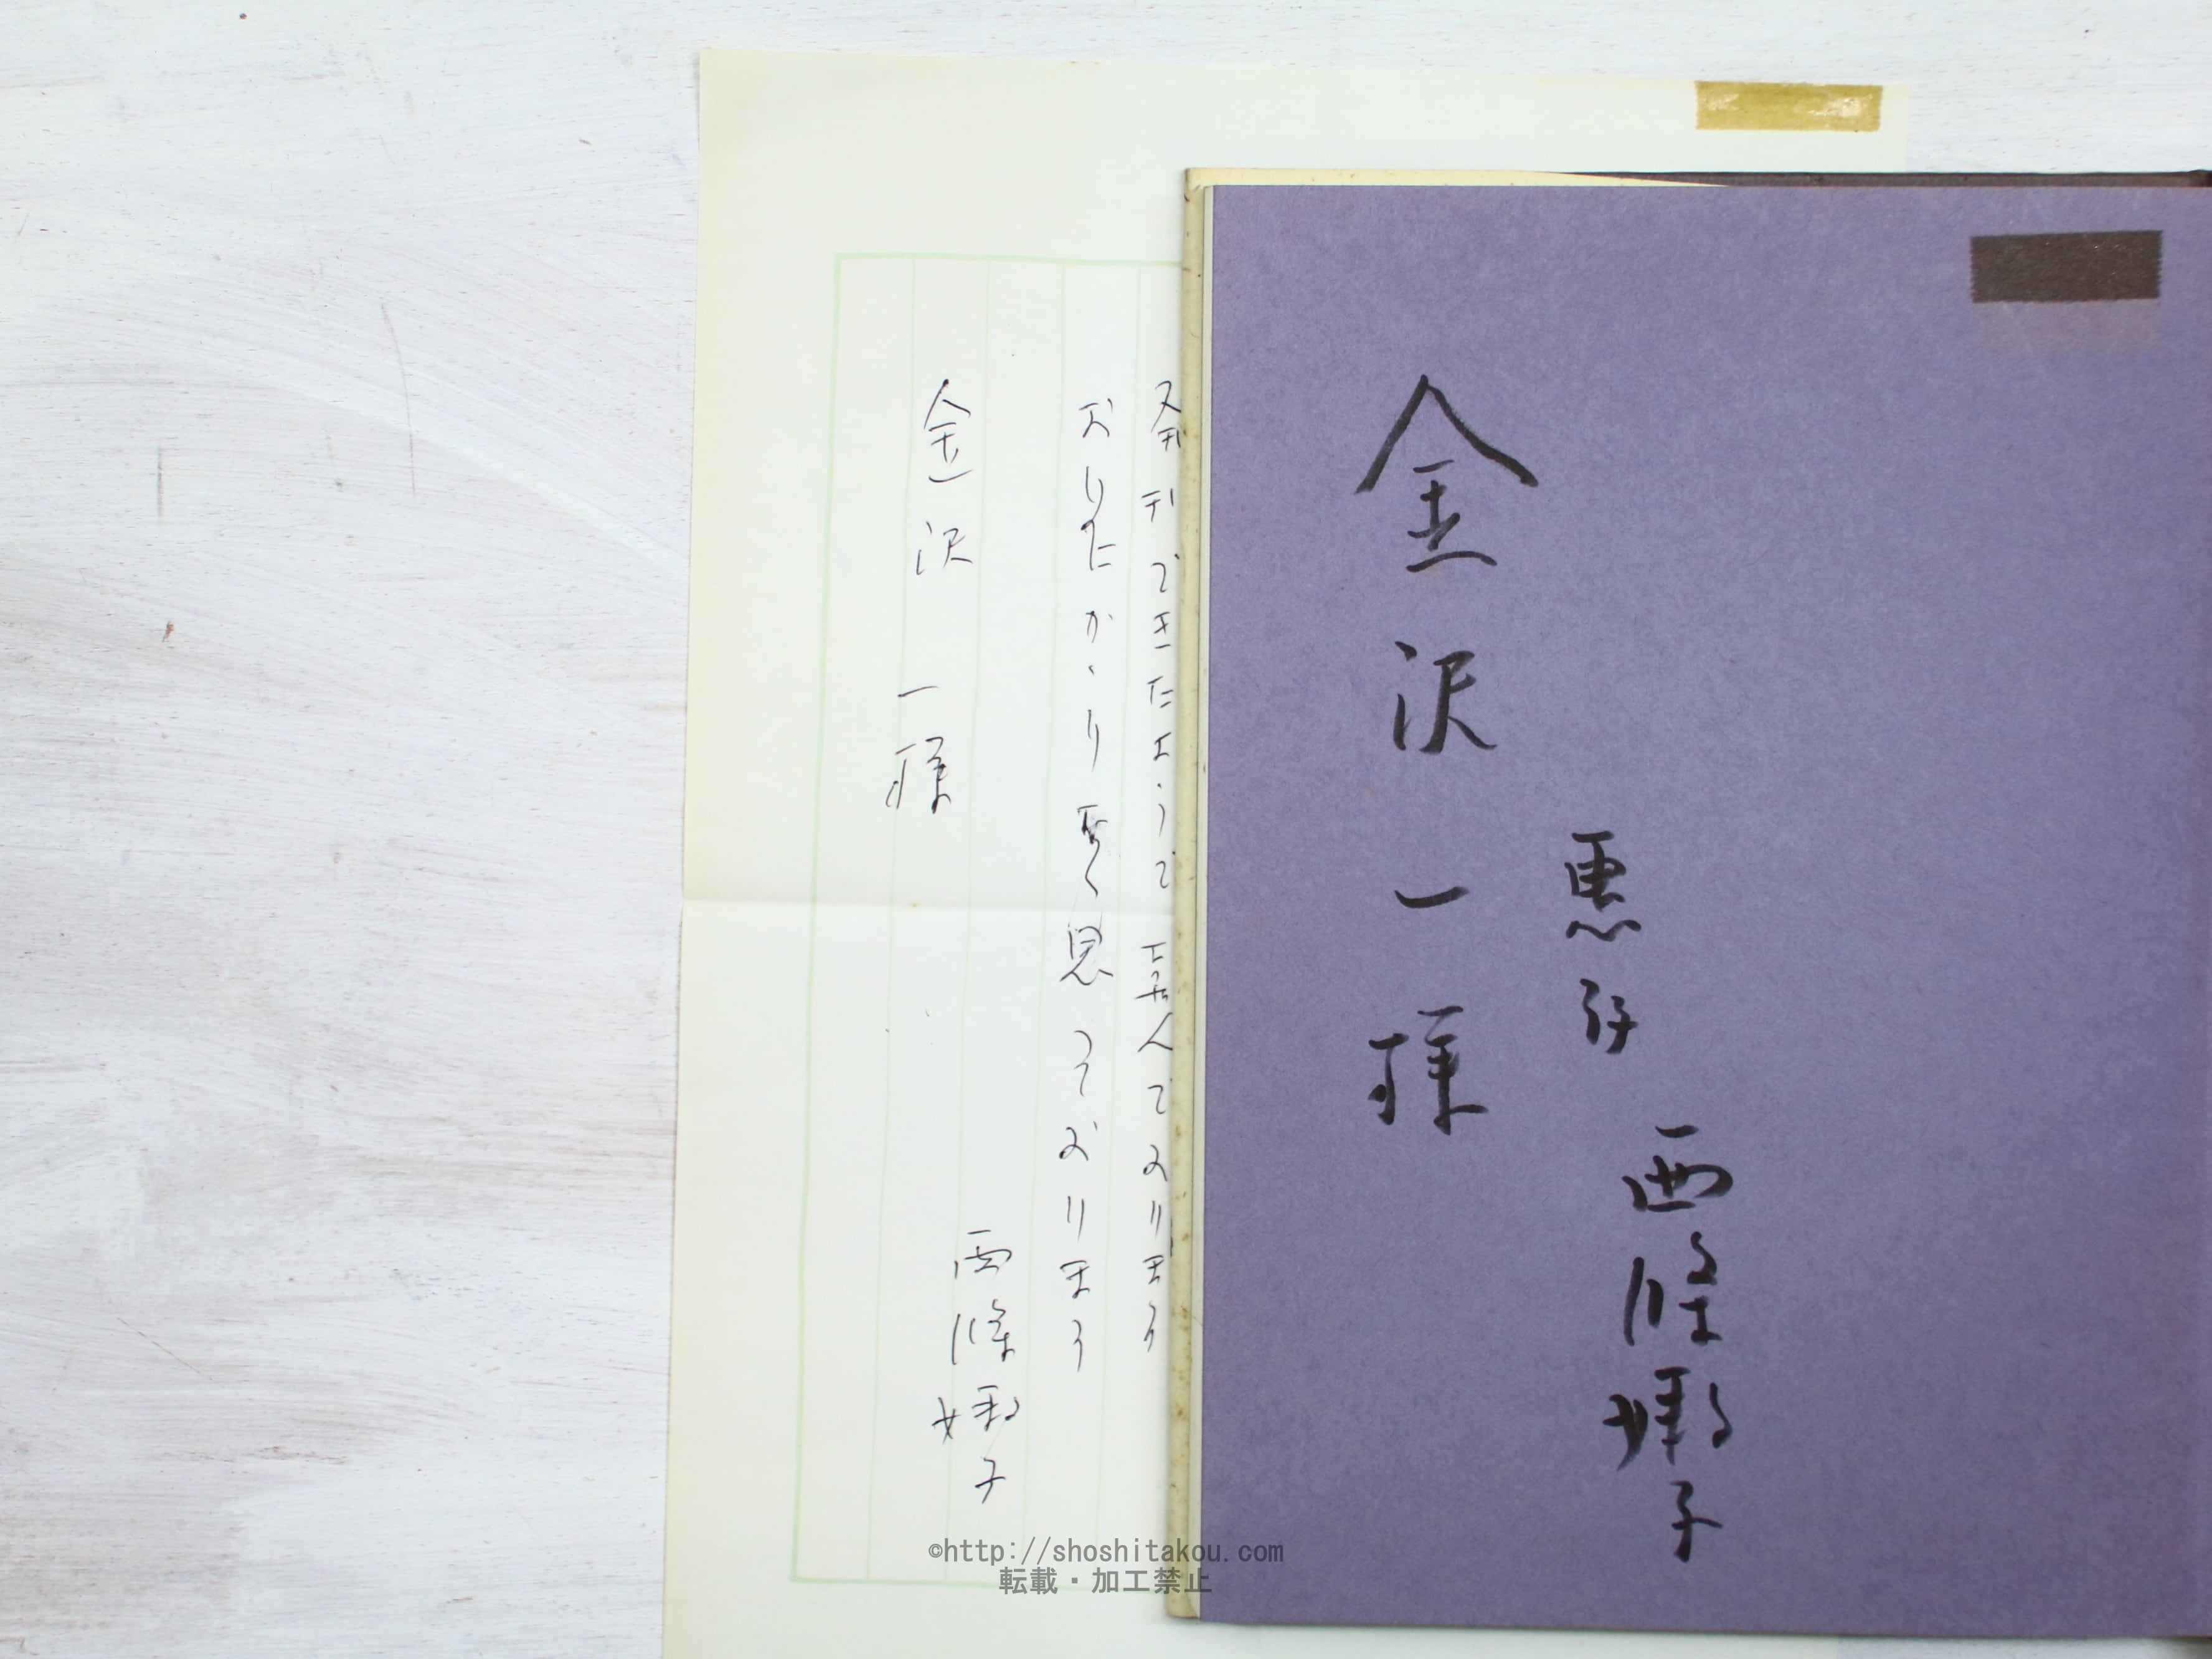 西條嫩子
惠存
金沢一様
発刊できたようで喜んでおります
おめにかゝり度く思っております
西條嫩子
金沢一様
©http://shoshitakou.com
転載・加工禁止